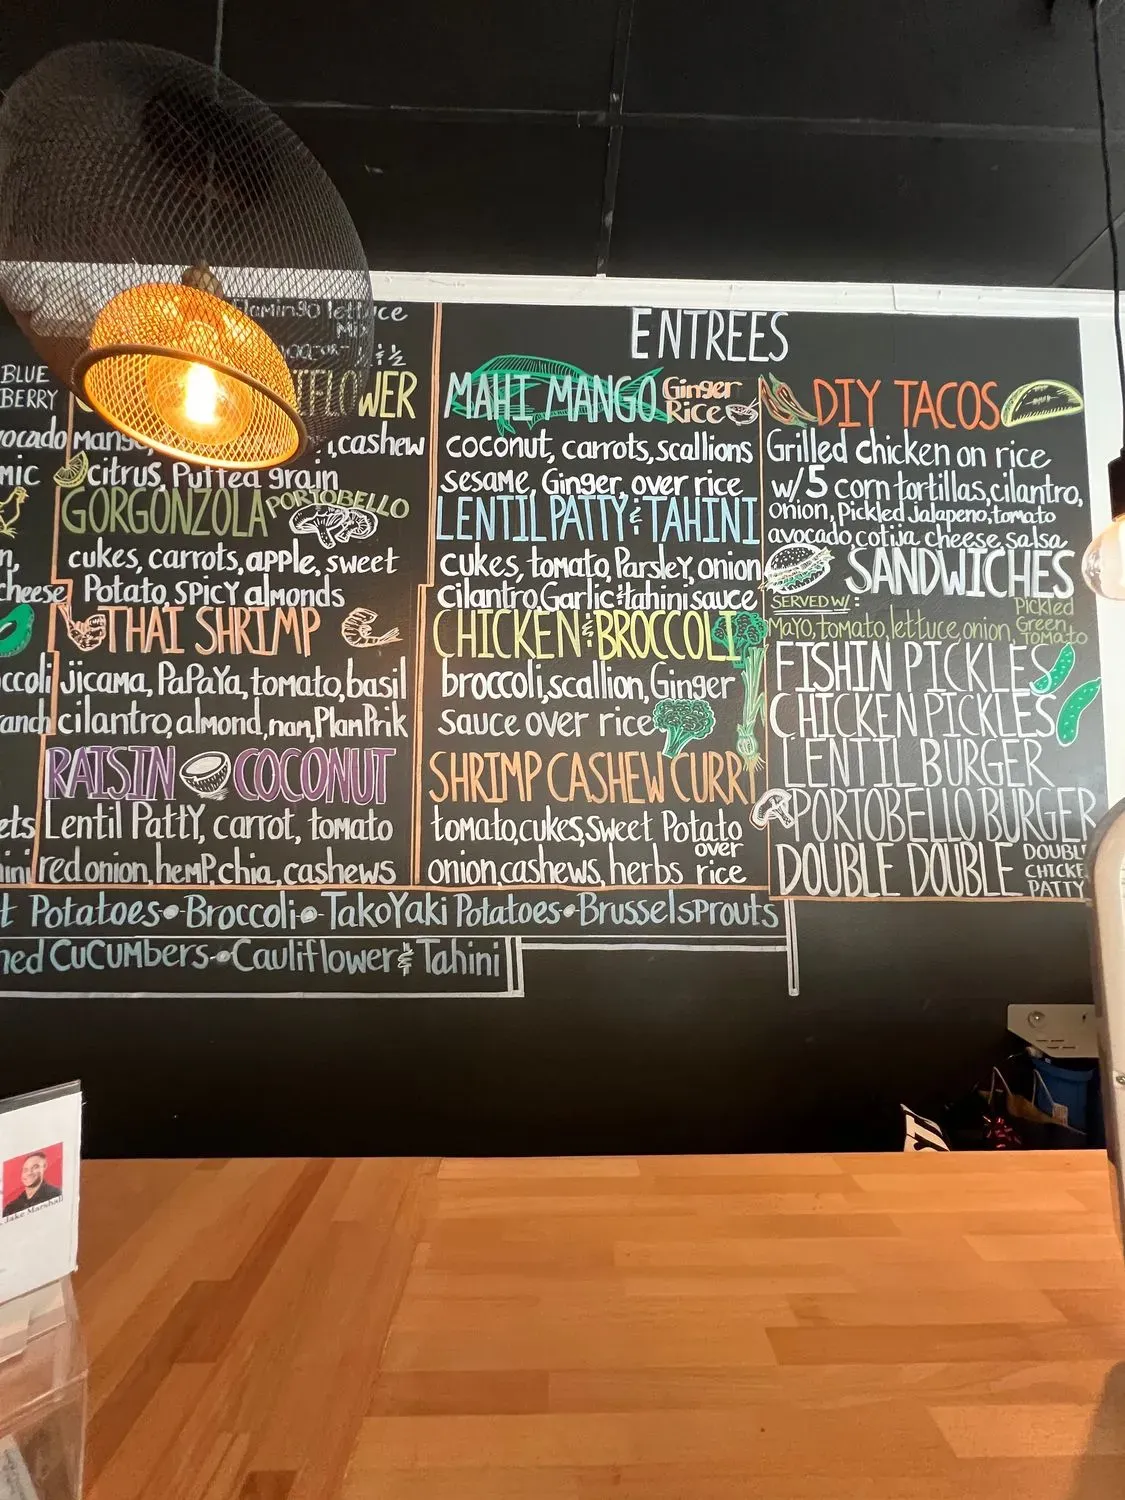 Flamingo lettuce
Mix
& 1/2
BLUE
BERRY
mic
cheese
WER
cashew
citrus, Puffed grain
GORGONZOLA PORTOBELLO
cukes, carrots, apple, sweet
Potato, SPICY almonds
THAI SHRIMP
jicama, PaPaYa, tomato, basil
cilantro, almond, nam, Plam Prik
RAISIN COCONUT
Lentil PattY, carrot, tomato
red onion, hemP, chia, cashews
ENTREES
MAHI MANGO Ginger Rice
coconut, carrots, scallions
sesame, Ginger, over rice
LENTIL PATTY & TAHINI
cukes, tomato, Parsley, onion
cilantro, Garlic & tahini sauce
CHICKEN & BROCCOLI
broccoli, scallion, Ginger
sauce over rice
SHRIMP CASHEW CURRY
tomato, cukes, sweet Potato
onion, cashews, herbs over rice
DIY TACOS
Grilled chicken on rice
w/ 5 corn tortillas, cilantro,
onion, Pickled Jalapeno, tomato
avocado, cotija cheese, salsa
SANDWICHES
SERVED W/:
MaYO, tomato, lettuce, onion, Pickled Green Tomato
FISHIN PICKLES
CHICKEN PICKLES
LENTIL BURGER
PORTOBELLO BURGER
DOUBLE DOUBLE DOUBLE CHICKE PATTY
t Potatoes • Broccoli • TakoYaki Potatoes • Brussel sprouts
ned CuCUMbers • Cauliflower & Tahini
Jake Marshall